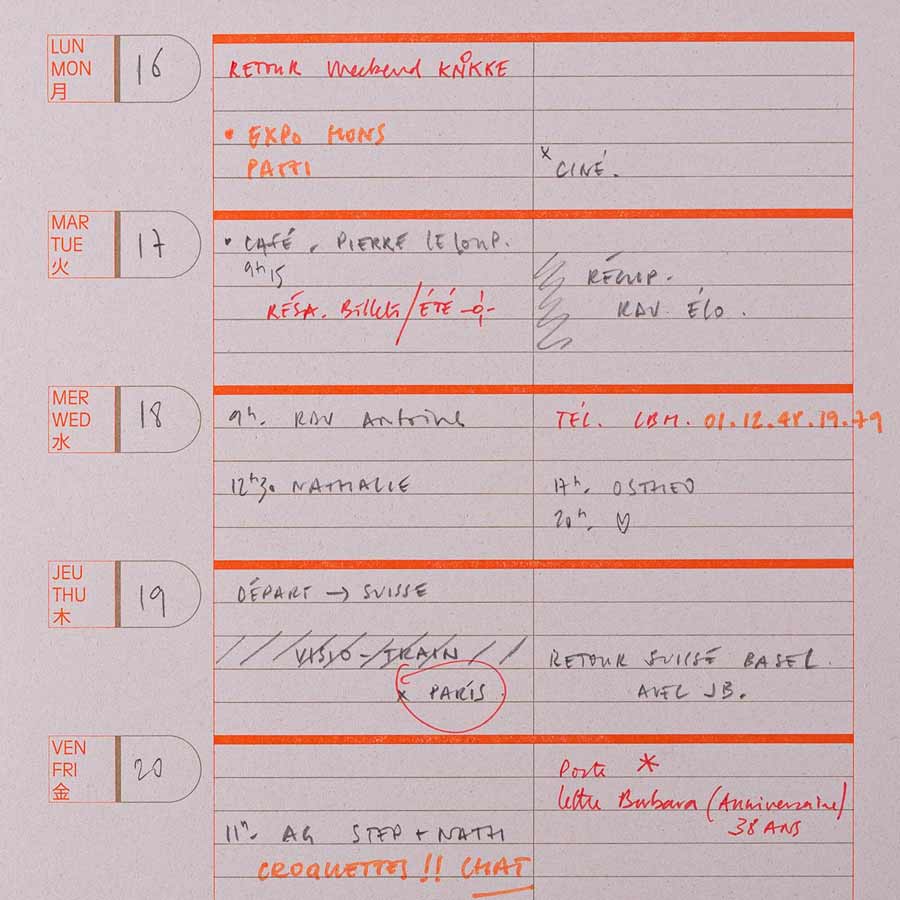 LUN
MON
月
16
RETOUR Weekend KNÖKKE
• EXPO MONS
PATTI
x CINÉ.
MAR
TUE
火
17
• CAFÉ. PIERRE LELOUP.
9h15
RÉSA. Billets/ÉTÉ
RÉCUP.
RAV ÉLO.
MER
WED
水
18
9h. RDV Antoine
12h30 NATHALIE
TÉL. LBM. 01.12.48.19.79
17h. OSTHEO
20h. ♡
JEU
THU
木
19
DÉPART → SUISSE
VISIO-TRAIN
x PARIS.
RETOUR SUISSE BASEL.
AVEC JB.
VEN
FRI
金
20
11h. AG STEP + NATH
CROQUETTES !! CHAT
Poste *
lettre Barbara (Anniversaire)
38 ANS